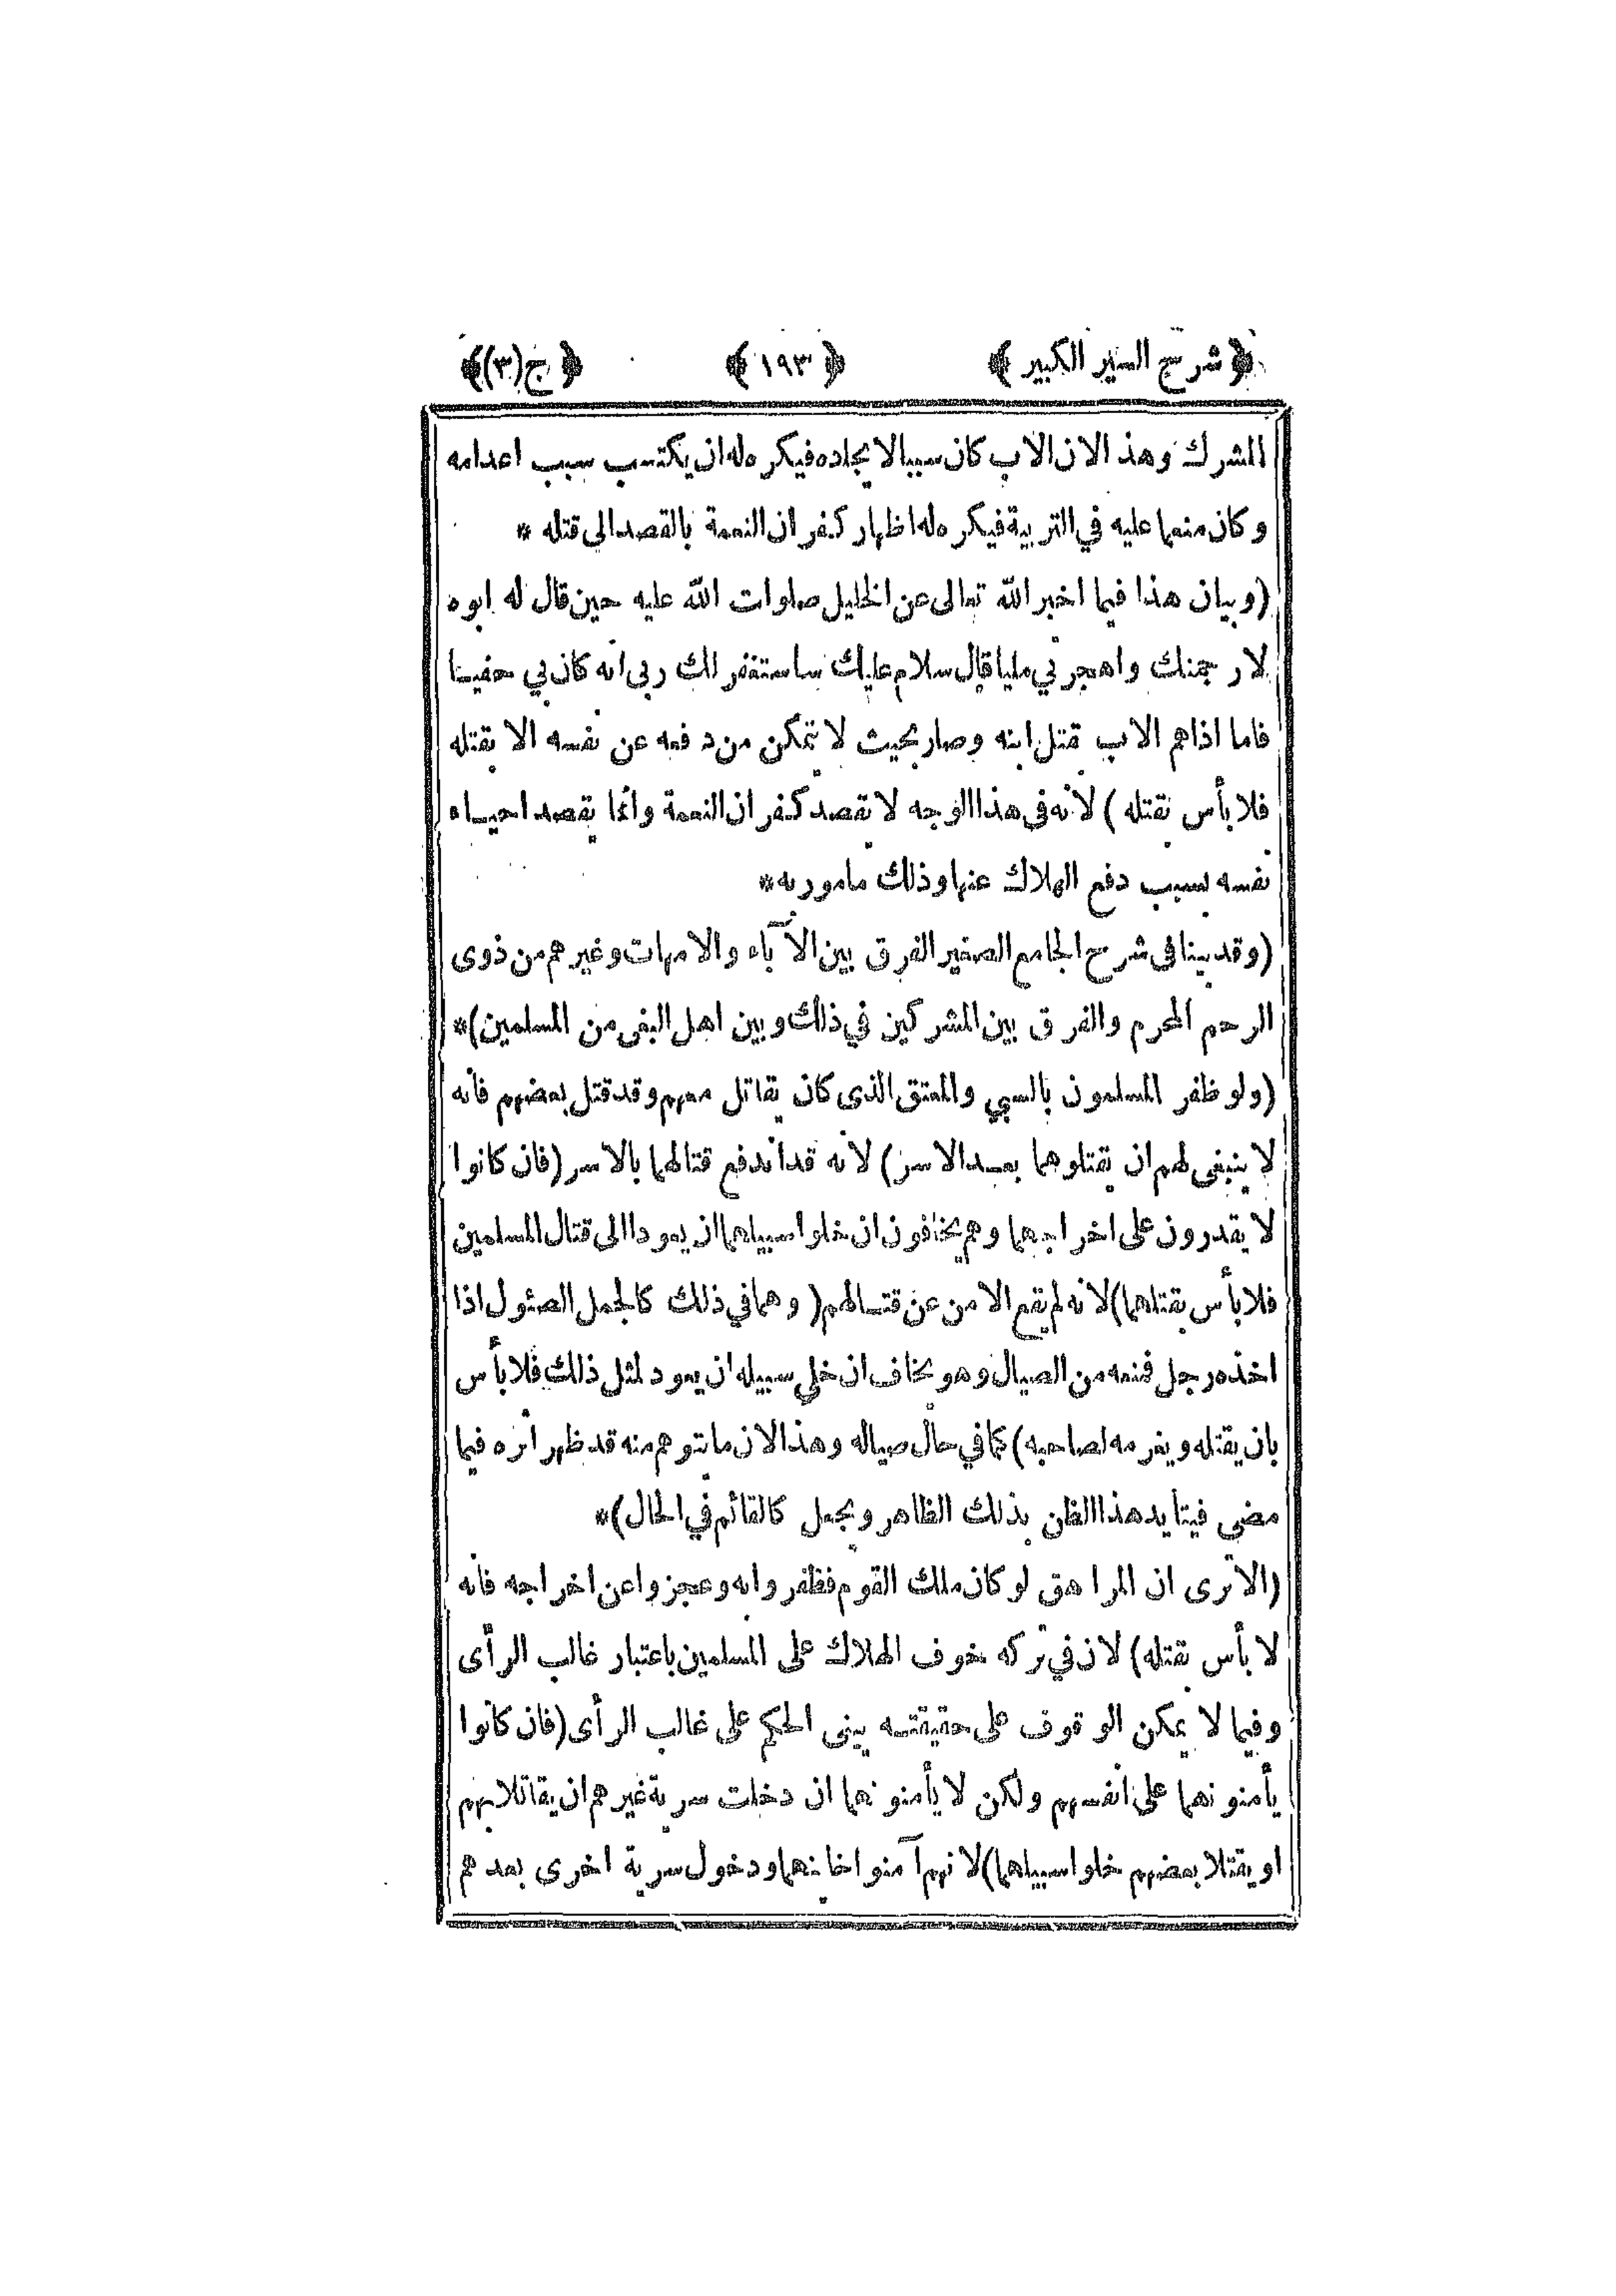 ﴿ شرح السير الكبير ﴾ ﴿ ١٩٣ ﴾ ﴿ ج (٣) ﴾
المشرك وهذا لان الاب كان سببا لايجاده فيكره له ان يكتسب سبب اعدامه
وكان منعما عليه في التربية فيكره له اظهار كفران النعمة بالقصد الى قتله *
(وبيان هذا فيما اخبر الله تعالى عن الخليل صلوات الله عليه حين قال له ابوه
لارجمنك واهجرني مليا قال سلام عليك ساستغفر لك ربى انه كان بي حفيا
فاما اذا هم الاب بقتل ابنه وصار بحيث لا يتمكن من دفعه عن نفسه الا بقتله
فلا بأس بقتله ) لانه فى هذا الوجه لا يقصد كفران النعمة وانما يقصد احياء
نفسه بسبب دفع الهلاك عنها وذلك مامور به *
(وقد بينا فى شرح الجامع الصغير الفرق بين الآباء والامهات وغيرهم من ذوى
الرحم المحرم والفرق بين المشركين في ذلك وبين اهل البغى من المسلمين)*
(ولو ظفر المسلمون بالسبي والمعتق الذى كان يقاتل معهم وقد قتل بعضهم فانه
لا ينبغى لهم ان يقتلوهما بعد الاسر) لانه قد اندفع قتالهما بالاسر (فان كانوا
لا يقدرون على اخراجهما وهم يخافون ان خلوا سبيلهما ان يعودا الى قتال المسلمين
فلا بأس بقتلهما) لانه لم يقع الامن عن قتالهم (وهما في ذلك كالجمل الصئول اذا
اخذه رجل فمنعه من الصيال وهو يخاف ان خلى سبيله ان يعود لمثل ذلك فلا بأس
بان يقتله ويغرمه لصاحبه) كما في حال صياله وهذا لان ما يتوهم منه قد ظهر اثره فيما
مضى فيتأيد هذا الظن بذلك الظاهر ويجعل كالقائم في الحال)*
(الا ترى ان المراهق لو كان ملك القوم فظفروا به وعجزوا عن اخراجه فانه
لا بأس بقتله) لان في تركه خوف الهلاك على المسلمين باعتبار غالب الرأى
وفيما لا يمكن الوقوف على حقيقته يبنى الحكم على غالب الرأى (فان كانوا
يأمنونهما على انفسهم ولكن لا يأمنونهما ان دخلت سرية غيرهم ان يقاتلا بهم
او يقتلا بعضهم خلوا سبيلهما) لانهم آمنوا اخافهما ودخول سرية اخرى بعدهم